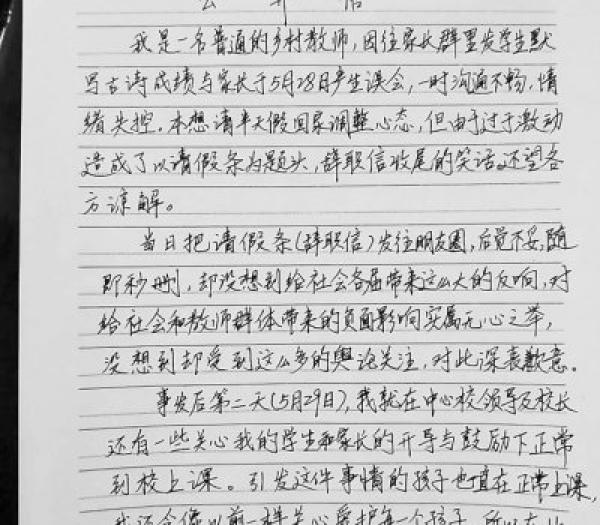 公开信
我是一名普通的乡村教师，因往家长群里发学生默
写古诗成绩与家长于5月28日产生误会，一时沟通不畅，情
绪失控。本想请半天假回家调整心态，但由于过于激动
造成了以请假条为题头，辞职信收尾的笑话，还望各
方谅解。
当日把请假条(辞职信)发往朋友圈，后觉不妥，随
即秒删，却没想到给社会各届带来这么大的反响，对
给社会和教师群体带来的负面影响实属无心之举，
没想到却受到这么多的舆论关注，对此深表歉意。
事发后第二天(5月29日)，我就在中心校领导及校长
还有一些关心我的学生和家长的开导与鼓励下正常
到校上课。引发这件事情的孩子也一直在正常上课，
我还会像以前一样关心爱护每一个孩子，所以在此